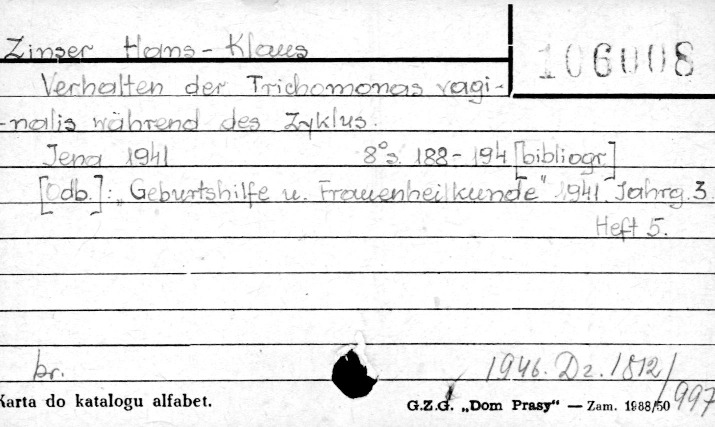 Zinser Hans-Klaus
106008
Verhalten der Trichomonas vagi-
-nalis während des Zyklus.
Jena 1941 8° s. 188-194 [bibliogr.]
[Odb.]: „Geburtshilfe u. Frauenheilkunde" 1941. Jahrg. 3.
Heft 5.
br.
1946. Dz. 1812/
997
Karta do katalogu alfabet.
G.Z.G. „Dom Prasy“ — Zam. 1988/50